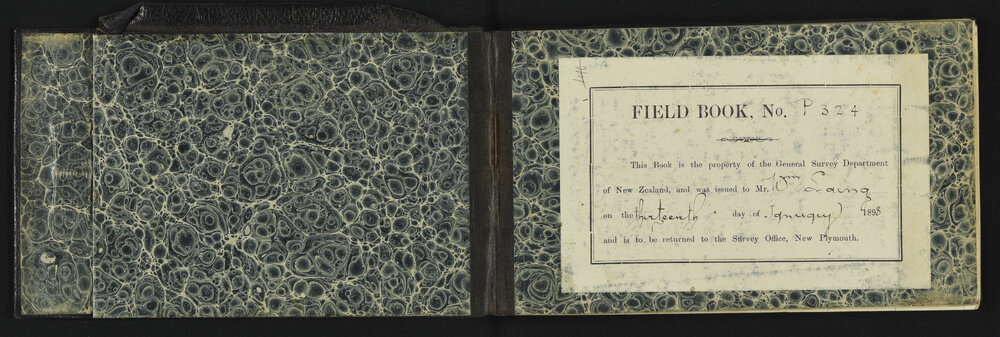 FIELD BOOK, No. P 324
This Book is the property of the General Survey Department
of New Zealand, and was issued to Mr. Wm Laing
on the thirteenth day of January 1898
and is to be returned to the Survey Office, New Plymouth.